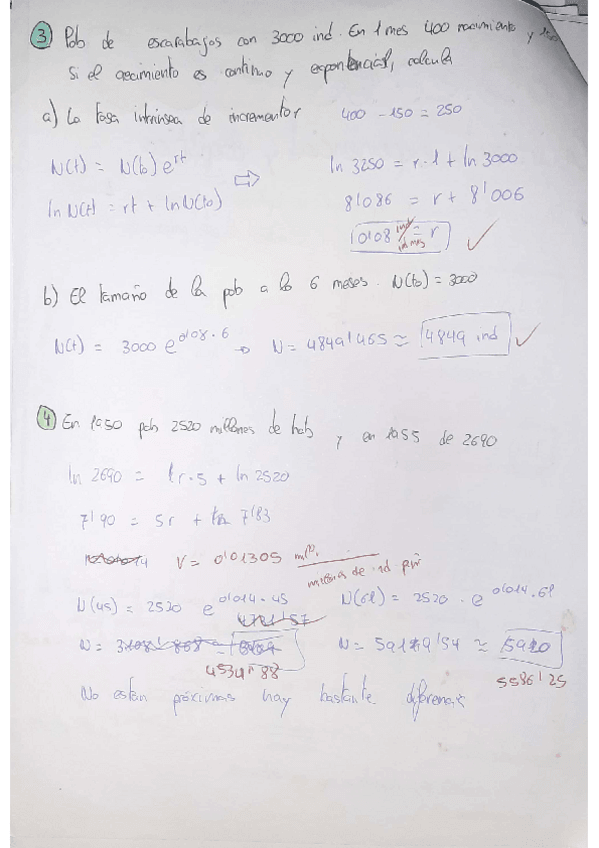 3) Pob de escarabajos con 3000 ind. En 1 mes 400 nacimiento y 150
Si el crecimiento es continuo y exponencial, calcula
a) La tasa intrínsea de incrementor 400 - 150 = 250
N(t) = N(t₀) e^rt ⇒ ln 3250 = r·1 + ln 3000
ln N(t) = rt + ln N(t₀) 8'086 = r + 8'006
0'08 ind/ind mes = r ✓
b) El tamaño de la pob a los 6 meses. N(t₀) = 3000
N(t) = 3000 e^0'08·6 → N = 4849'465 ≃ 4849 ind ✓
4) En 1950 pob 2520 millones de hab y en 1955 de 2690
ln 2690 = r·5 + ln 2520
7'90 = 5r + 7'83
r = 0'01305
N(45) = 2520 e^0'014·45 N(61) = 2520 · e^0'014·61
N = N = 5919'54 ≃ 5920
4534'88 5586'25
No estan próximas hay bastante diferencia